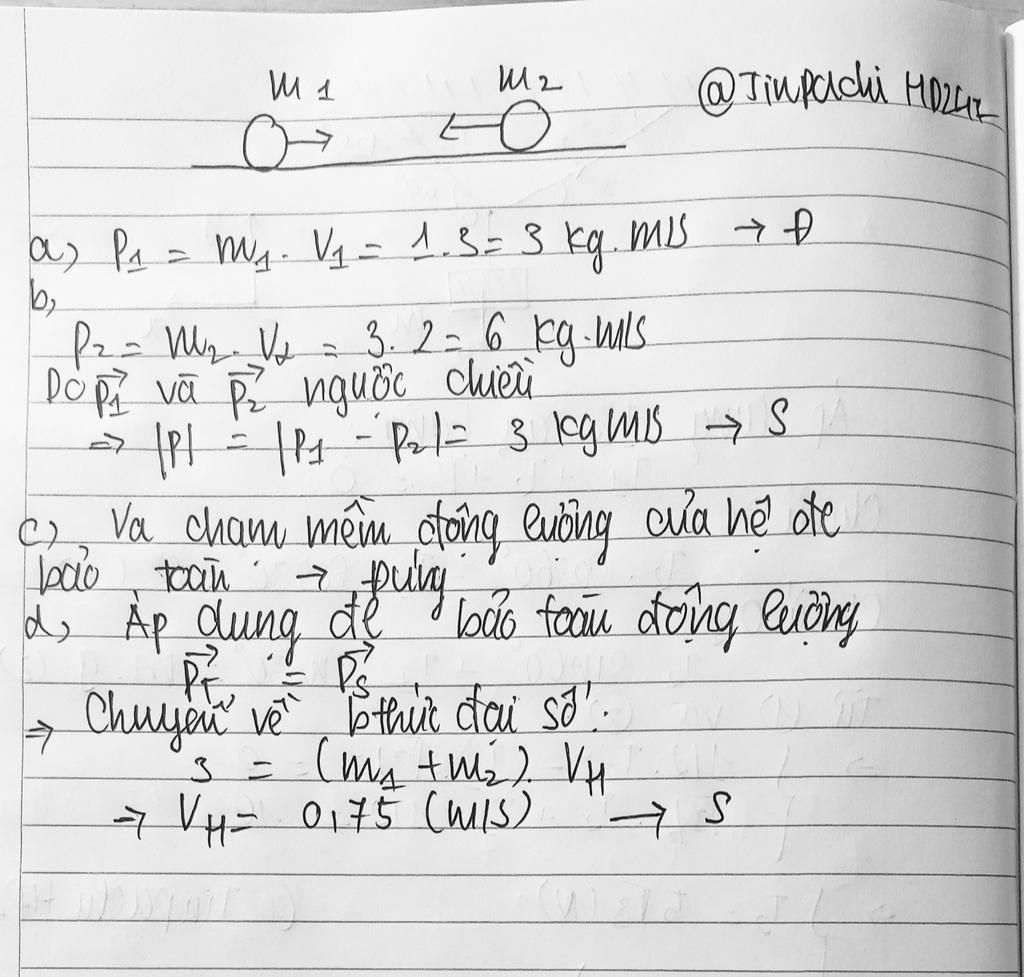 m1 m2 @Jinpachi HD247
a, P1 = m1. V1 = 1.3= 3 kg.m/s → Đ
b,
P2 = m2. V2 = 3. 2= 6 kg.m/s
Do P1 và P2 ngược chiều
=> |P| = |P1 - P2|= 3 kgm/s → S
c, Va chạm mềm động lượng của hệ đc
bảo toàn → Đúng
d, Áp dụng đl bảo toàn động lượng
Pt = Ps
=> Chuyển về b thức đại số:
3 = (m1 +m2). VH
=> VH= 0,75 (m/s) → S